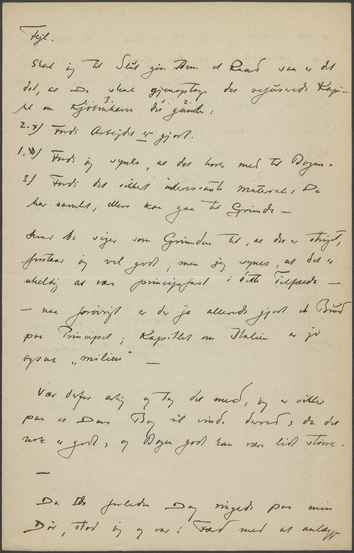 Fejl.
Skal jeg til Slut give Dem et Raad saa er det
det, at De skal gjenoptage det udgaaede Kapi-
tel om Kjöbenhavn
2. Fordi Arbejdet er gjort.
1. Fordi jeg synes, at det hører med til Bogen.
3) Fordi det sikkert interessante Materiale De
har samlet, ellers kan gaa til Grunde —
Hvad De siger som Grunden til, at det er strøget,
forstaar jeg vel godt, men jeg synes, at det er
uheldig at være principfast i dette Tilfælde —
— naa forøvrigt er der jo allerede gjort et Brud
paa Princippet; Kapitlet om Italien er jo
ogsaa „milieu" —
Vær derfor artig og tag det med, jeg er sikker
paa at Deres Bog vil vinde derved; da det
nok er godt, og Bogen godt kan være lidt større.
—
Da De forleden Dag ringede paa min
Dör, stod jeg og var med at